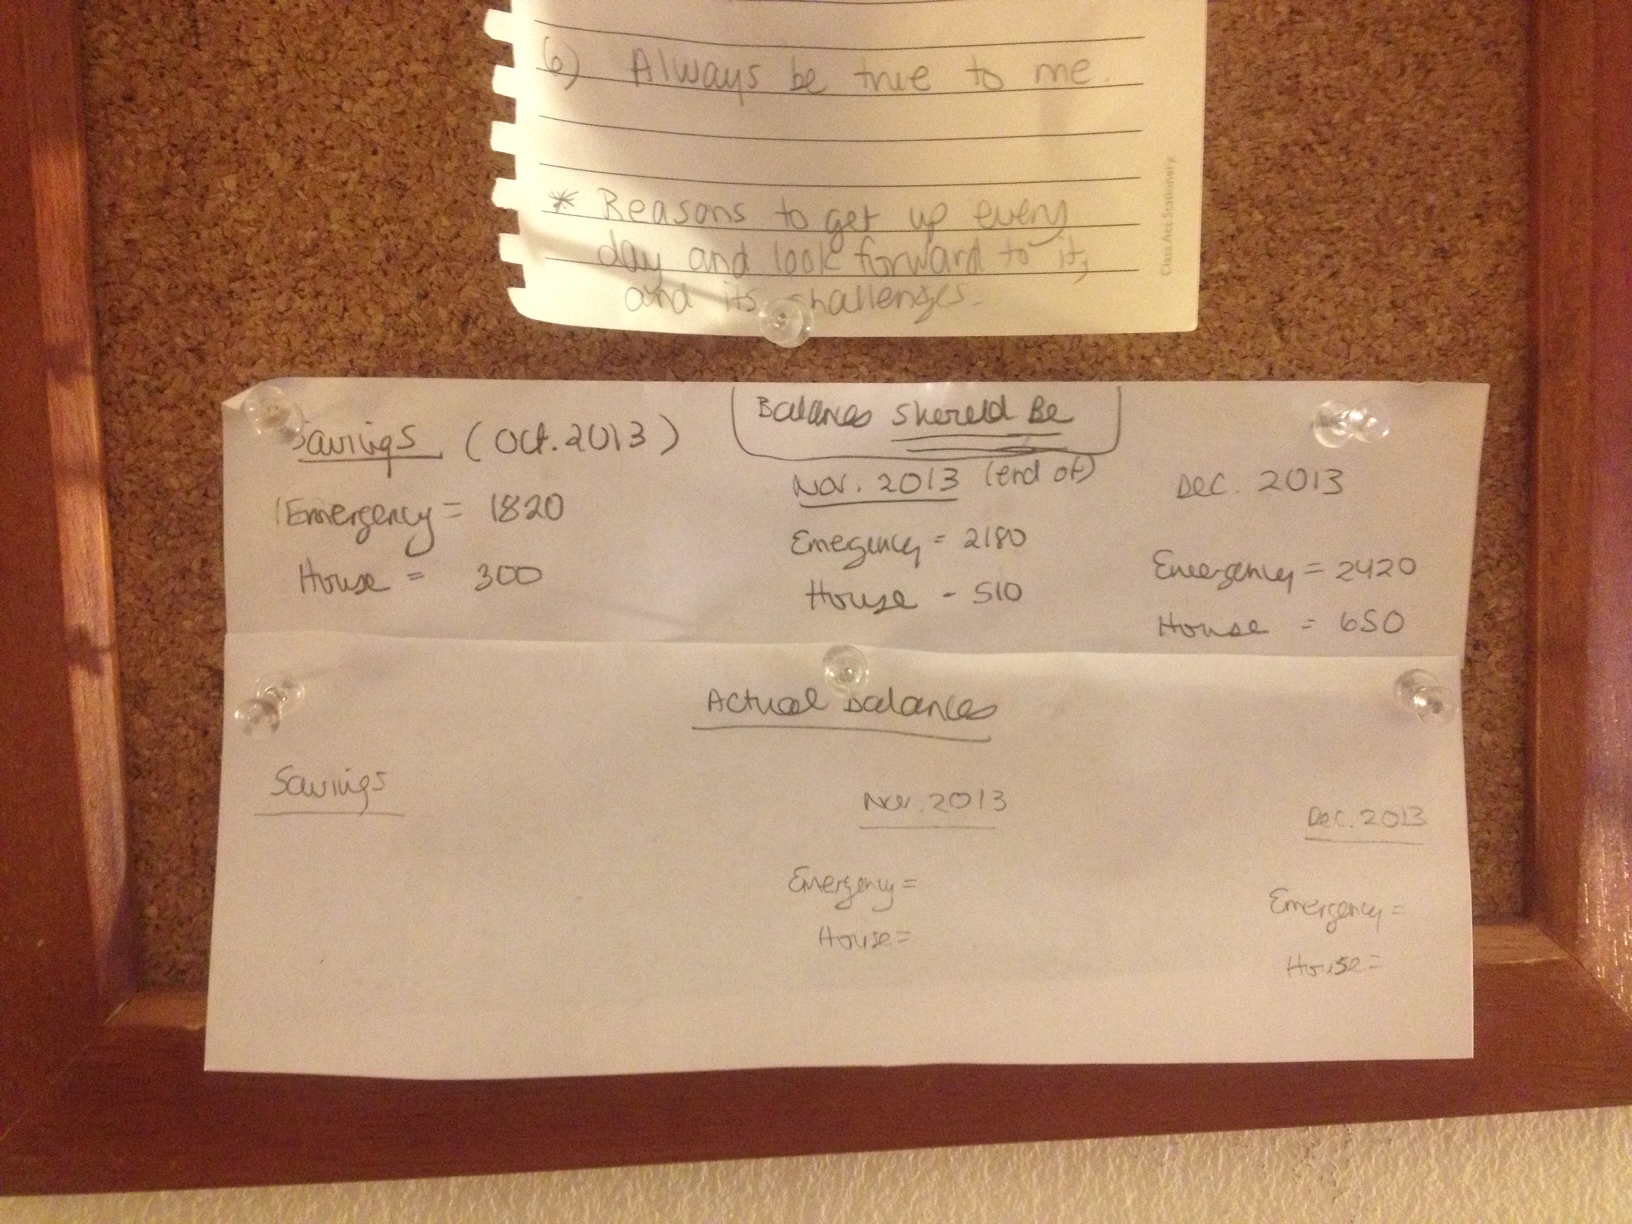 6) Always be true to me.
* Reasons to get up every
day and look forward to it,
and its challenges.
Class Act Stationery
Savings (Oct. 2013)
Emergency = 1820
House = 300
Balances Should Be
Nov. 2013 (end of)
Emegency = 2180
House - 510
Dec. 2013
Emergency = 2420
House = 650
Actual Balances
Savings
Nov. 2013
Emergency =
House =
Dec. 2013
Emergency =
House =